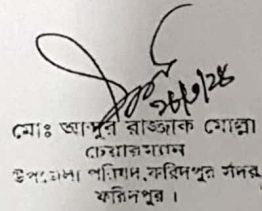 ২৮/৭/২৪
মোঃ আব্দুর রাজ্জাক মোল্লা
চেয়ারম্যান
উপজেলা পরিষদ, ফরিদপুর সদর
ফরিদপুর।